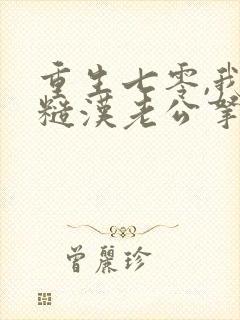 重生七零,我
糙漢老公寧
曾麗珍